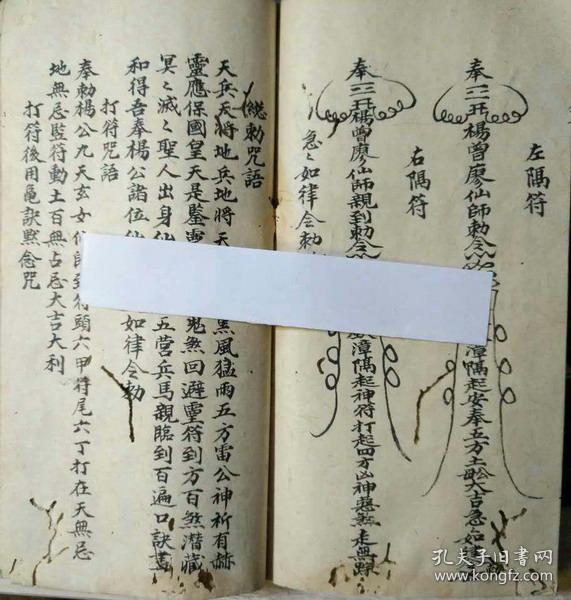 左隅符
奉 楊曾廖仙師敕令 漳隅起安奉五方土 大吉急
右隅符
奉 楊曾廖仙師親到勅令 漳隅起神符打起四方凶神惡煞走無踪
急々如律令勅
總勅咒語
天兵天將地兵地將天 黑風猛雨五方雷公神祈有赫
靈應保國皇天是鑒 鬼煞回避靈符到方百煞潛藏
冥々滅々聖人出身仙 五营兵馬親臨到百遍口訣書
和得吾奉楊公諸位仙 如律令勅
打符咒語
奉勅楊公九天玄女仙師到符頭六甲符尾六丁打在天無忌
地無忌監符動土百無占忌大吉大利
打符後用亀訣黙念咒
孔夫子旧书网
www.kongfz.com